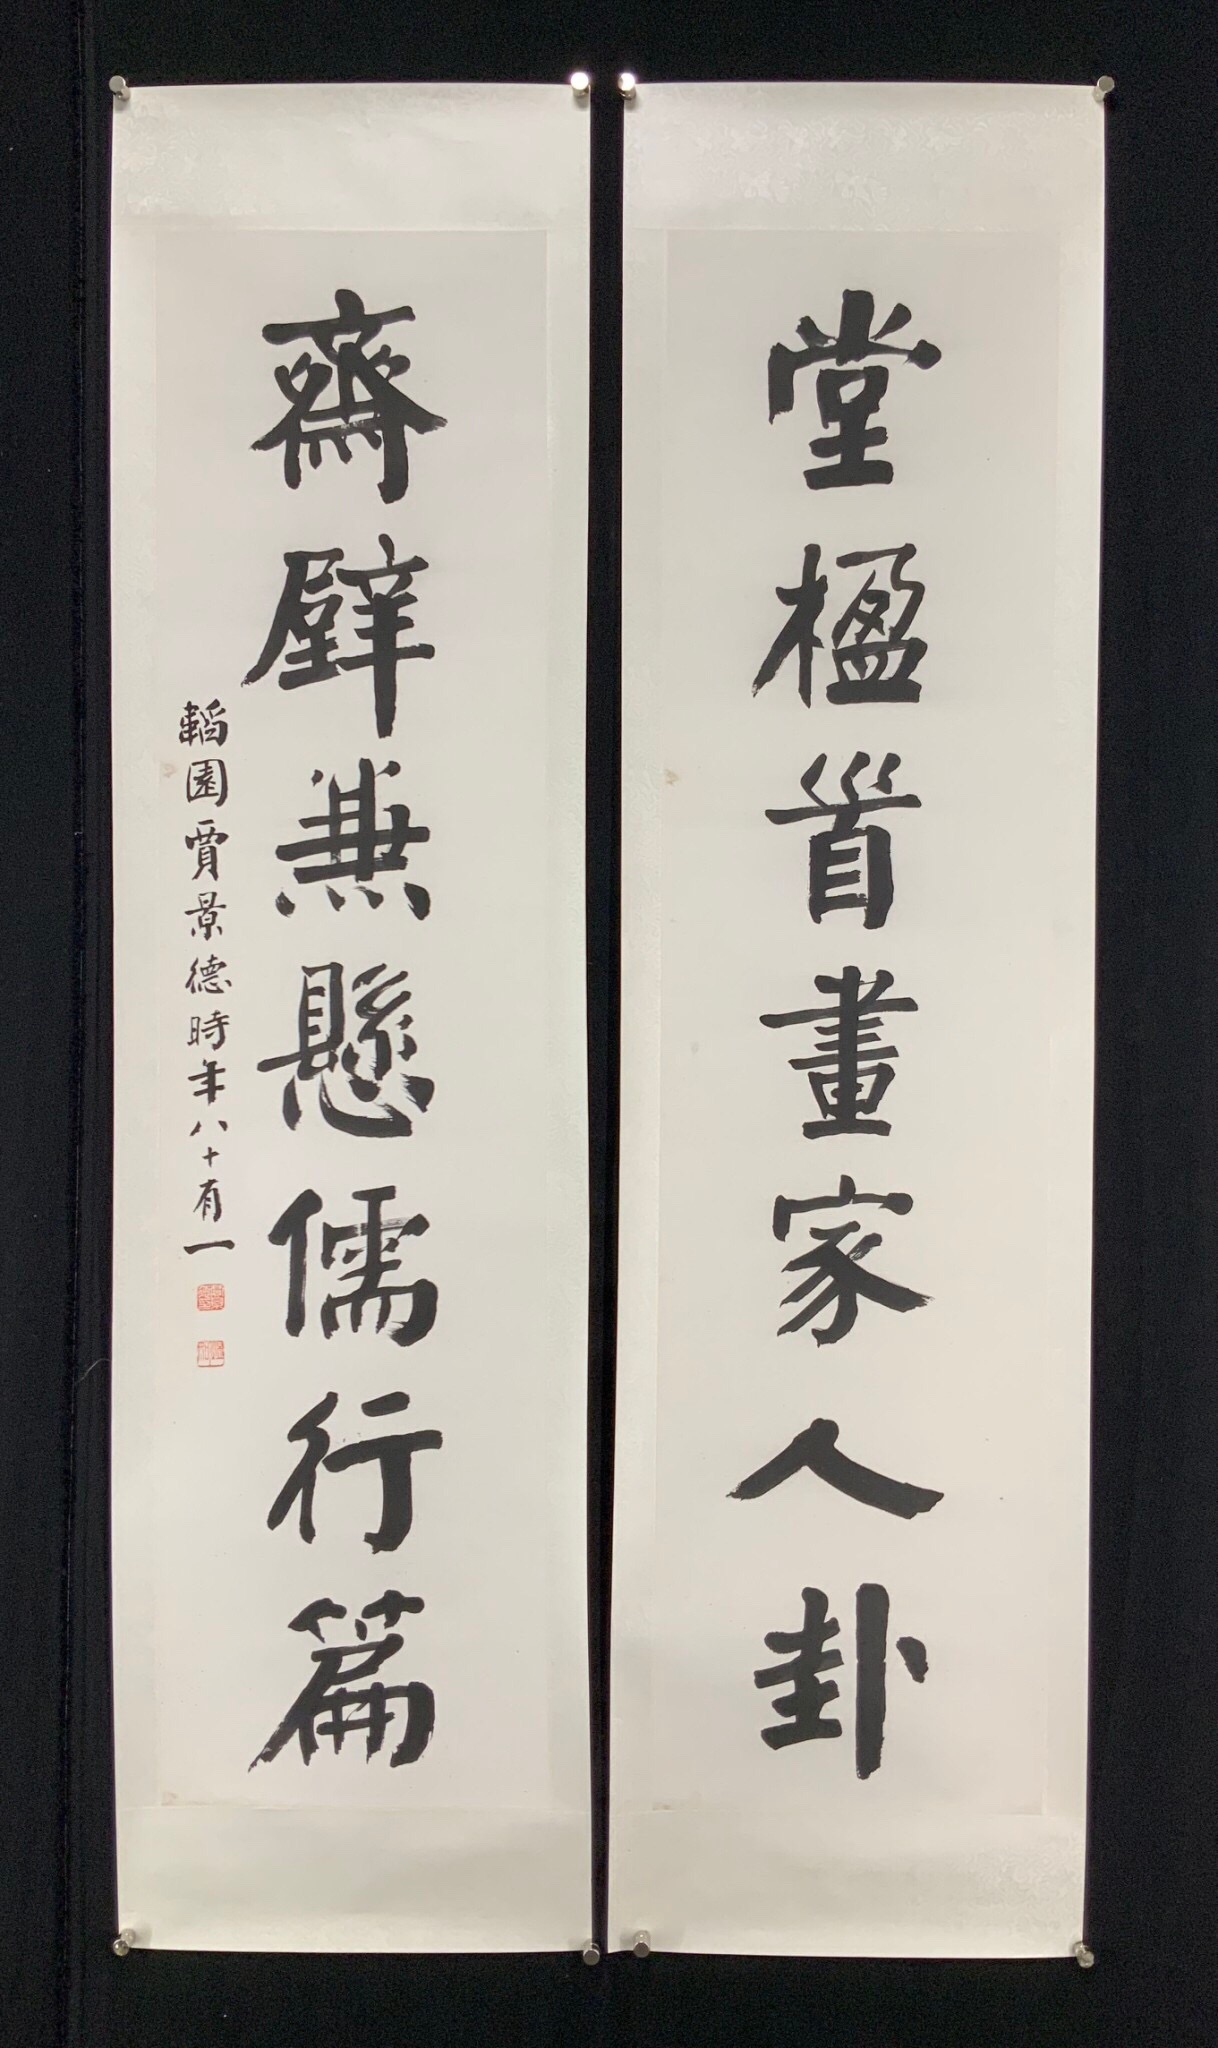 堂楹首畫家人卦
齋壁兼懸儒行篇
韜園賈景德時年八十有一